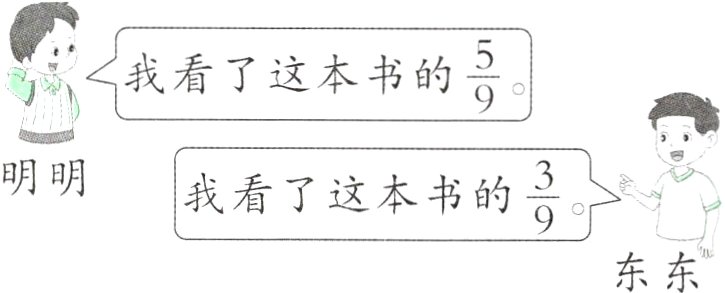 我看了这本书的 5/9。
明明
我看了这本书的 3/9。
东东